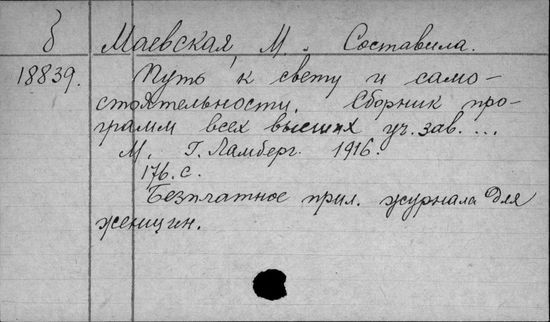 б Маевская, М. Составила.
18839. Путь к свету и само-
стоятельности. Сборник про-
грамм всех высших уч. зав. ...
М. Г. Ламберг. 1916.
176. с.
Безплатное прил. журнала Для
женщин.